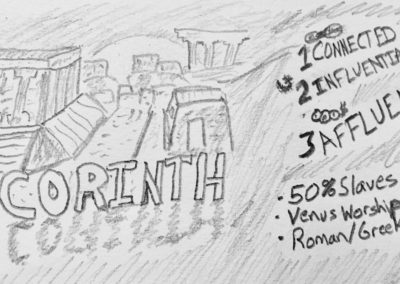 CORINTH
1 CONNECTED
2 INFLUENTIA
3 AFFLUE
• 50% Slaves
• Venus Worship
• Roman/Greek